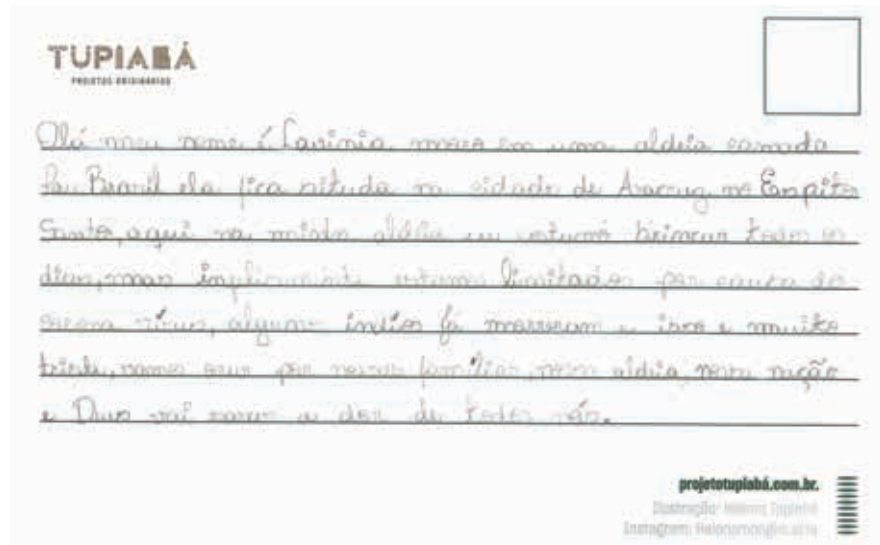 TUPIABÁ
PROJETOS ORIGINÁRIOS
Olá meu nome é Lavinia moro em uma aldeia camada
Pau Brasil ela fica situda na cidade de Aracruz, no Espito
Santo, aqui na minha aldeia eu costumo brincar todos os
dias, mas estamos limitados por causa do
corona vírus, alguns índios já morreram e isso e muito
triste, vamos orar por nossas famílias, nossa aldeia, nossa nação
e Deus vai sarar a dor de todos nós.
projetotupiabá.com.br.
Ilustração:
Instagram: